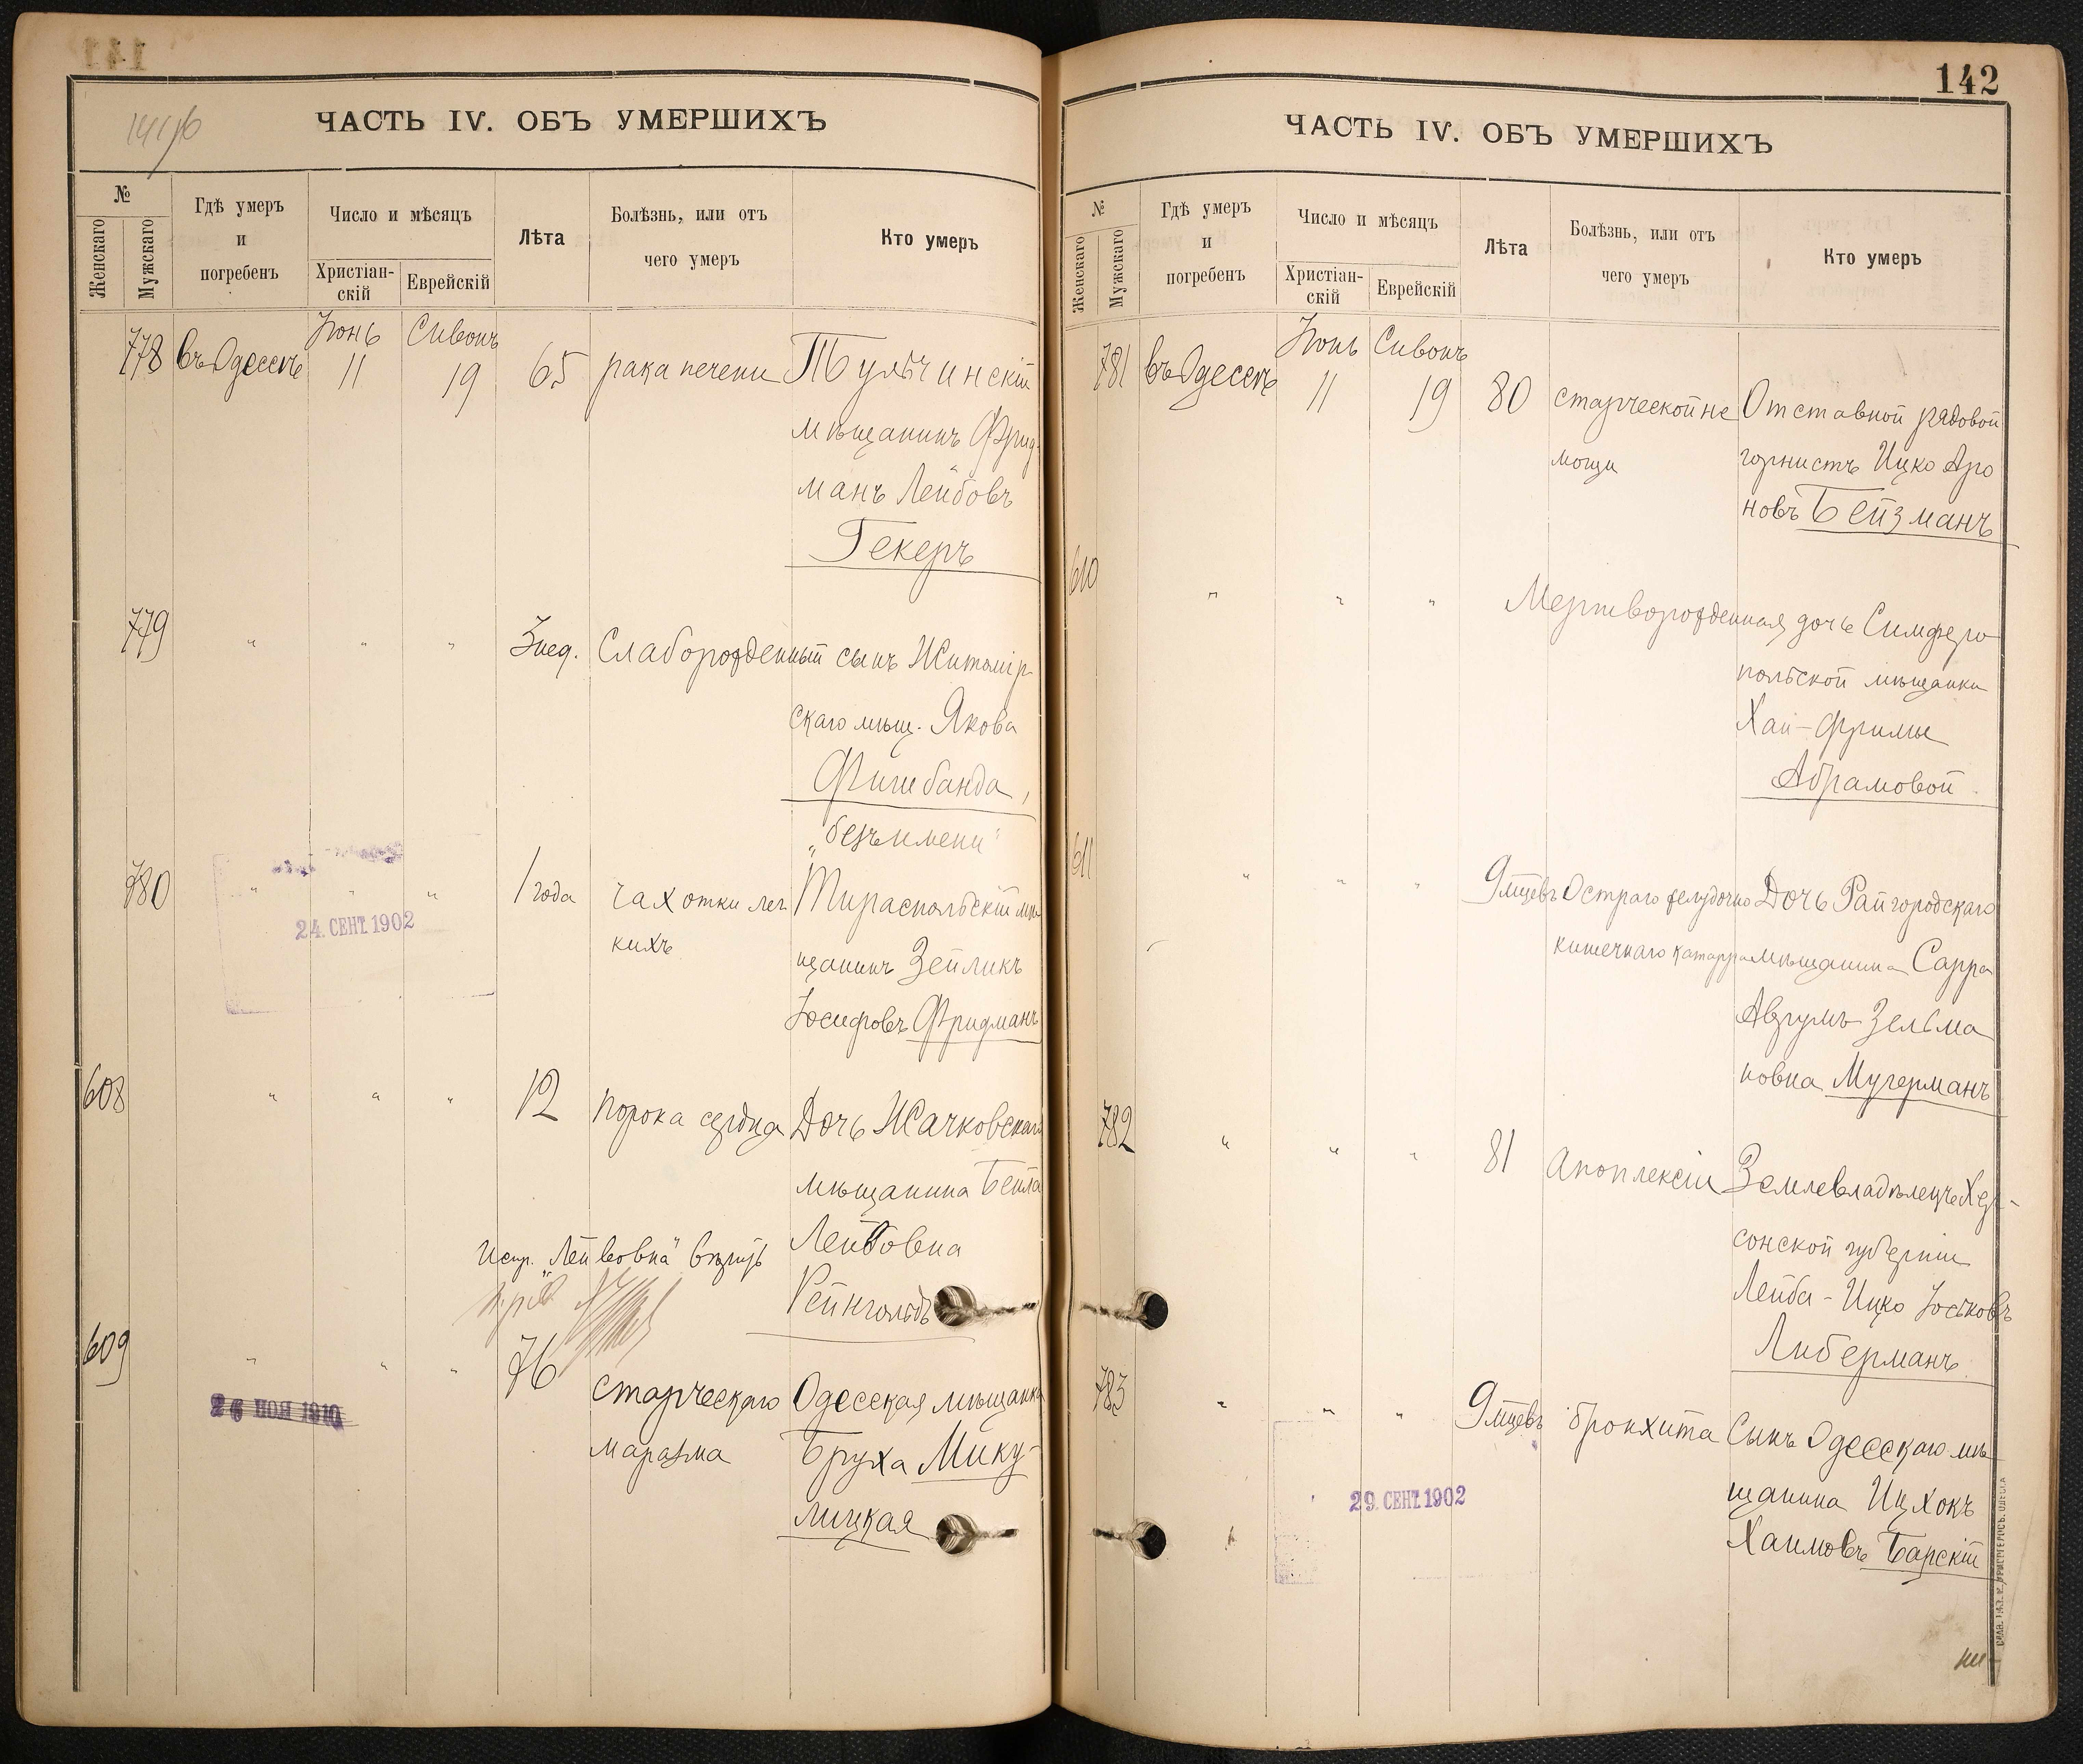 ЧАСТЬ IV. ОБЪ УМЕРШИХЪ
№
Женскаго
Мужскаго
Гдѣ умеръ
и
погребенъ
Число и мѣсяцъ
Христіан-
скій
Еврейскій
Лѣта
Болѣзнь, или отъ
чего умеръ
Кто умеръ
Іюнь Сивонъ
778 въ Одессѣ 11 19 65 рака печени Тульчинскій
мѣщанинъ Фрид-
манъ Лейбовъ
Гекеръ
779 " " " 3 нед. Слаборожденный сынъ Житомір-
скаго мѣщ. Якова
Фигибанда,
„безъ имени"
780 " " " 1 года чахотки лег Тираспольскій мѣ-
кихъ щанинъ Зейликъ
Іосифовъ Фридманъ
24. СЕНТ. 1902
608 " " " 12 порока сердца Дочь Жачковскаго
мѣщанина Бейла
Лейбовна
Испр. „Лейбовна" вѣрить
Рейнгольдъ
609 " " " 76
старческаго Одесская мѣщанка
маразма Бруха Мику-
лицкая
26 НОЯ 1910
142
ЧАСТЬ IV. ОБЪ УМЕРШИХЪ
№
Женскаго
Мужскаго
Гдѣ умеръ
и
погребенъ
Число и мѣсяцъ
Христіан-
скій
Еврейскій
Лѣта
Болѣзнь, или отъ
чего умеръ
Кто умеръ
Іюнь Сивонъ
781 въ Одессѣ 11 19 80 старческой не Отставной рядовой
мощи горнистъ Ицко Аро
новъ Бейзманъ
610 " " " Мертворожденная дочь Симферо
польской мѣщанки
Хаи-Фримы
Абрамовой
611 " " " 9 мѣцевъ Остраго желудочно Дочь Райгородскаго
кишечнаго катарра мѣщанина Сарра
Авгумъ Зельма
новна Мугерманъ
782 " " " 81 Апоплексіи Землевладѣлецъ Хер-
сонской губерніи
Лейба-Ицко Іоськовъ
Либерманъ
783 " " " 9 мѣцевъ бронхита Сынъ Одесскаго мѣ
щанина Ицхокъ
Хаимовъ Барскій
29. СЕНТ. 1902